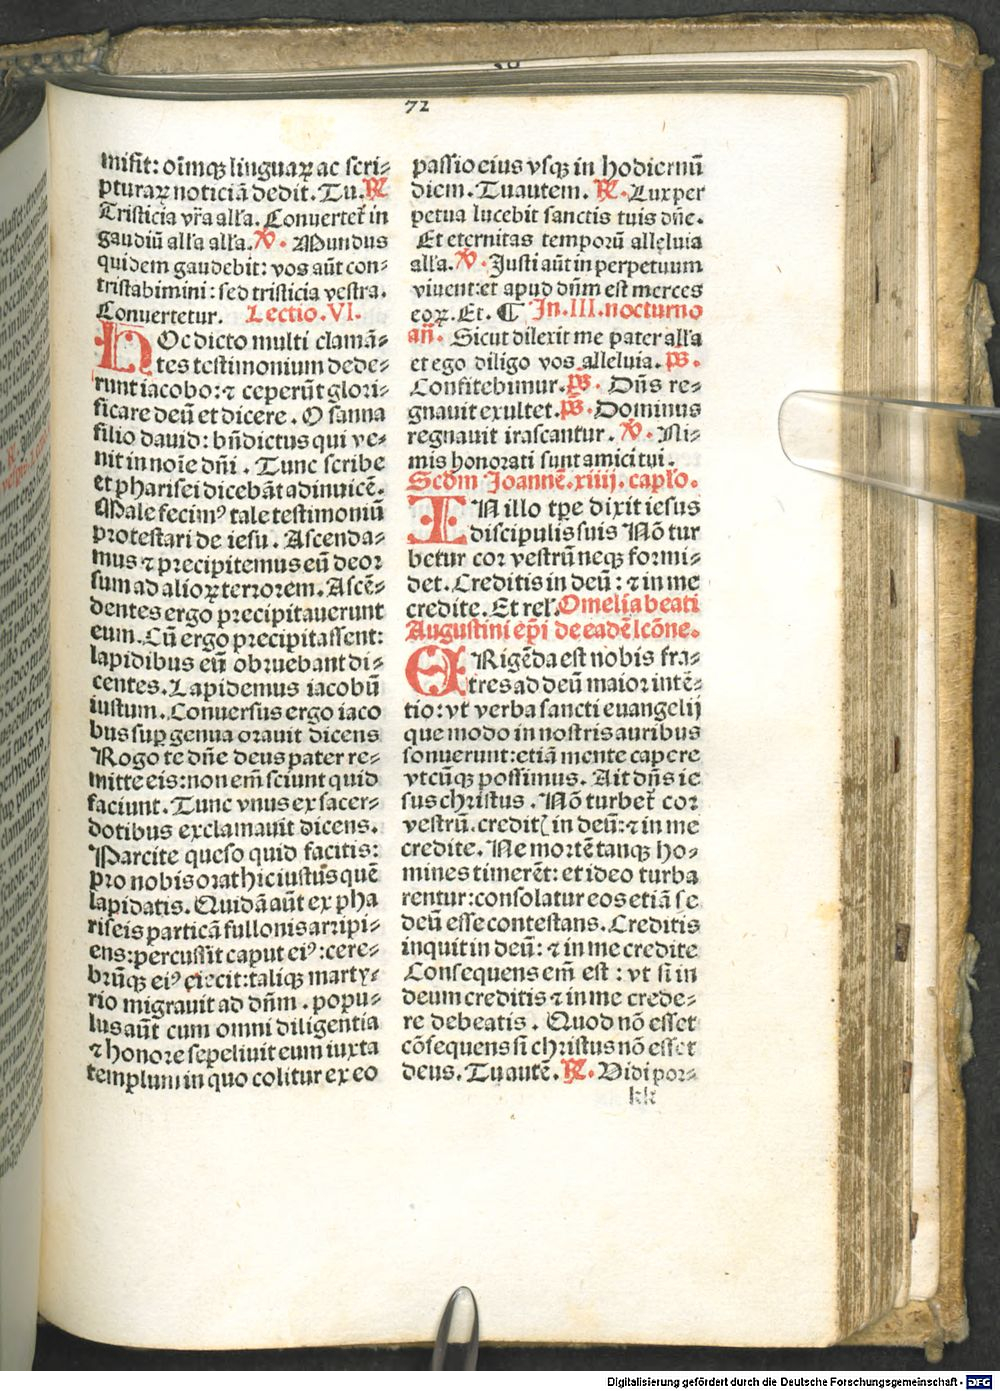 72
misit: oīmqꝫ linguaꝝ ac scri⸗
pturaꝝ noticiā dedit. Tu. ℟
Tristicia vr̄a all'a. Conuertet̄ in
gaudiū all'a all'a. ℣. Mundus
quidem gaudebit: vos aūt con⸗
tristabimini: sed tristicia vestra.
Conuertetur. Lectio. VI.
HOc dicto multi clamā⸗
tes testimonium dede⸗
runt iacobo: ⁊ ceperūt glori⸗
ficare deū et dicere. O sanna
filio dauid: bn̄dictus qui ve⸗
nit in noīe dn̄i. Tunc scribe
et pharisei dicebāt adinuicē.
Male fecimꝰ tale testimoniū
protestari de iesu. Ascenda⸗
mus ⁊ precipitemus eū deor
sum ad alioꝝ terrorem. Ascē⸗
dentes ergo precipitauerunt
eum. Cū ergo precipitassent:
lapidibus eū obruebant di⸗
centes. Lapidemus iacobū
iustum. Conuersus ergo iaco
bus suꝑ genua orauit dicens
Rogo te dn̄e deus pater re⸗
mitte eis: non em̄ sciunt quid
faciunt. Tunc vnus ex sacer⸗
dotibus exclamauit dicens.
Parcite queso quid facitis:
pro nobis orat hic iustus quē
lapidatis. Quidā aūt ex pha
riseis particā fullonis arripi⸗
ens: percussit caput eiꝰ: cere⸗
brūqꝫ eiꝰ eiecit: taliqꝫ marty⸗
rio migrauit ad dn̄m. popu⸗
lus aūt cum omni diligentia
⁊ honore sepeliuit eum iuxta
templum in quo colitur ex eo
passio eius vsqꝫ in hodiernū
diem. Tu autem. ℟. Lux per
petua lucebit sanctis tuis dn̄e.
Et eternitas temporū alleluia
all'a. ℣. Justi aūt in perpetuum
viuent: et apud dn̄m est merces
eoꝝ. Et. ¶ In. III. nocturno
an̄. Sicut dilexit me pater all'a
et ego diligo vos alleluia. p̄s.
Confitebimur. p̄s. Dn̄s re⸗
gnauit exultet. p̄s. Dominus
regnauit irascantur. ℣. Ni⸗
mis honorati sunt amici tui.
Scd̄m Joannē. xiiij. caplo.
IN illo tp̄e dixit iesus
discipulis suis Nō tur
betur cor vestrū neqꝫ formi⸗
det. Creditis in deū: ⁊ in me
credite. Et rel'. Omelia beati
Augustini ep̄i de eadē lcōne.
ERigēda est nobis fra⸗
tres ad deū maior intē⸗
tio: vt verba sancti euangelij
que modo in nostris auribus
sonuerunt: etiā mente capere
vtcūqꝫ possimus. Ait dn̄s ie
sus christus. Nō turbet̄ cor
vestrū. creditꝭ in deū: ⁊ in me
credite. Ne mortē tanqꝫ ho⸗
mines timerēt: et ideo turba
rentur: consolatur eos etiā se
deū esse contestans. Creditis
inquit in deū: ⁊ in me credite
Consequens em̄ est: vt si in
deum creditis ⁊ in me crede⸗
re debeatis. Quod nō esset
cōsequens si christus nō esset
deus. Tu autē. ℟. Vidi por⸗
kk
Digitalisierung gefördert durch die Deutsche Forschungsgemeinschaft - DFG